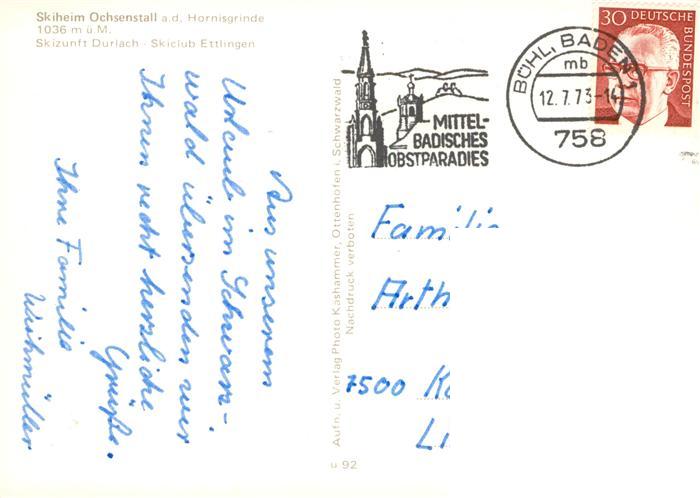 Skiheim Ochsenstall a.d. Hornisgrinde
1036 m ü.M.
Skizunft Durlach · Skiclub Ettlingen
Aus unserem
Urlaub im Schwarz-
wald übersenden wir
Ihnen recht herzliche
Grüße.
Ihre Familie
Weihmüller
Aufn. u. Verlag Photo Kashammer, Ottenhöfen i. Schwarzwald
Nachdruck verboten
u 92
MITTEL-
BADISCHES
OBSTPARADIES
BÜHL, BADEN 1
mb
12.7.73-14
758
30 DEUTSCHE
BUNDESPOST
Famili
Arth
7500 Ka
Li